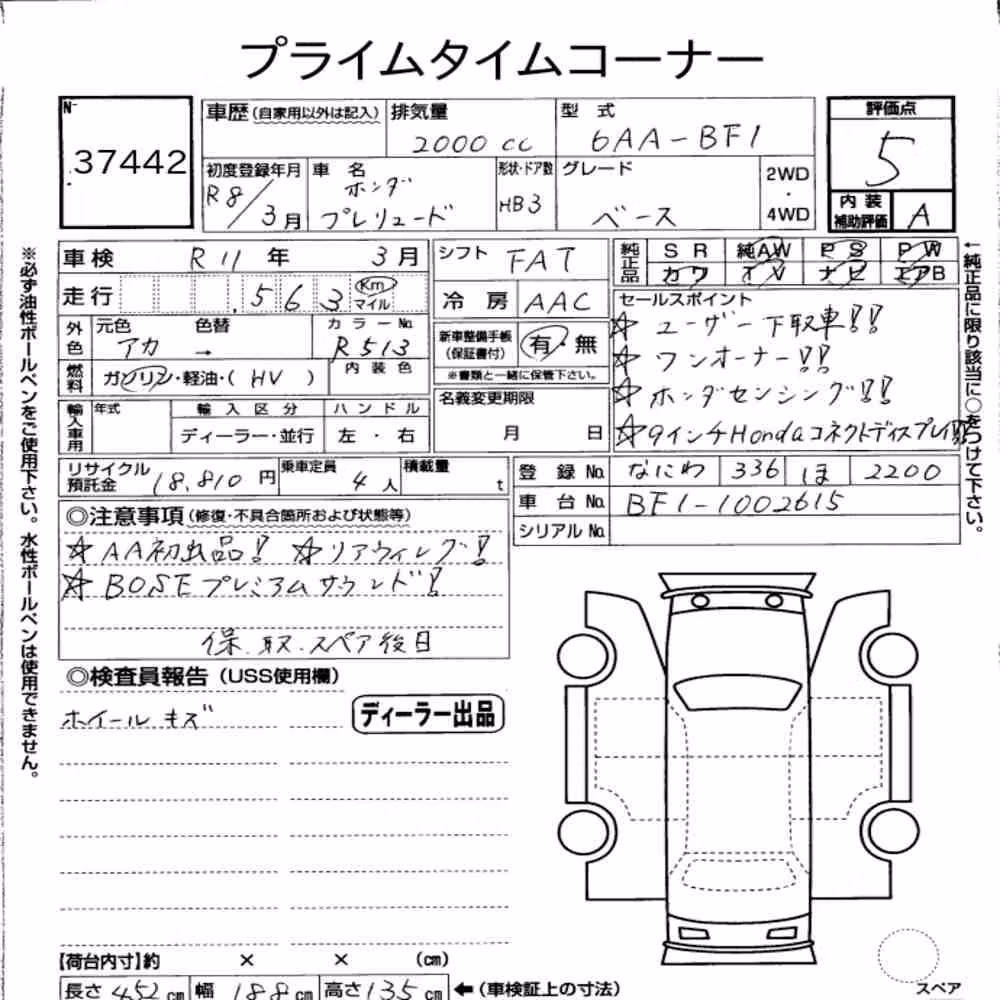 プライムタイムコーナー
N-
37442
車歴 (自家用以外は記入)
排気量
2000 cc
型 式
6AA-BF1
評価点
5
内装
補助評価
A
初度登録年月
R8/3月
車 名
ホンダ
プレリュード
形状・ドア数
HB3
グレード
ベース
2WD
・
4WD
車検 R11 年 3月
走行 563 Km マイル
シフト FAT
冷 房 AAC
純正品
SR 純AW PS PW
カワ TV ナビ エアB
外色
元色 アカ
色替 →
カラーNo. R513
内装色
燃料 ガソリン・軽油・( HV )
新車整備手帳
(保証書付)
有・無
※書類と一緒に保管下さい。
名義変更期限
月 日
セールスポイント
☆ ユーザー下取車!!
☆ ワンオーナー!!
☆ ホンダセンシング!!
☆ 9インチHondaコネクトディスプレイ!!
輸入車用
年式
輸入区分
ディーラー・並行
ハンドル
左・右
リサイクル
預託金 18,810 円
乗車定員 4人
積載量 t
登録No. なにわ 336 ほ 2200
車台No. BF1-1002615
シリアルNo.
◎注意事項 (修復・不具合箇所および状態等)
☆ AA初出品! ☆ リアウィング!
☆ BOSEプレミアムサウンド!
保.取.スペア後日
◎検査員報告 (USS使用欄)
ホイールキズ
ディーラー出品
【荷台内寸】約 × × (cm)
長さ 452 cm 幅 188 cm 高さ 135 cm ← (車検証上の寸法)
スペア
※必ず油性ボールペンをご使用下さい。水性ボールペンは使用できません。
←純正品に限り該当に○をつけて下さい。